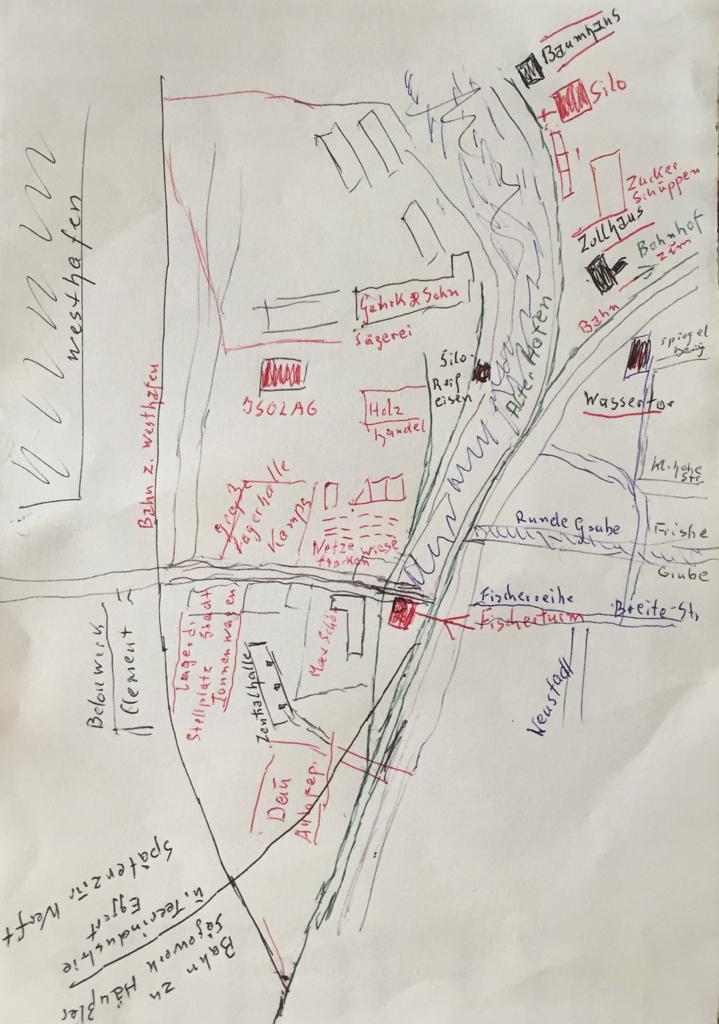 Baumhaus
Silo
Zucker
Schuppen
Zollhaus
Bahnhof
zum
Bahn
Westhafen
Gehrk & Sohn
Sägerei
Silo
Reif
eisen
Alter Hafen
spiegel
berg
Wassertor
JSOLAG
Holz
handel
Bahn z. Westhafen
Kl. hohe
Str
große
Lagerhalle
Kamps
Netze
trocken
wiese
Runde Grube
Frishe
Grube
Fischerreihe
Fischerturm
Breite-Str,
Betonwerk
Clement
Lager d.
Stadt
Stellplatz
Tonnenwagen
Zentralhalle
Max Schö
Neustadt
Autorep.
Später zur Werft
Eggert
u. Teerindustrie
Sägewerk
Bahn zu Häußler